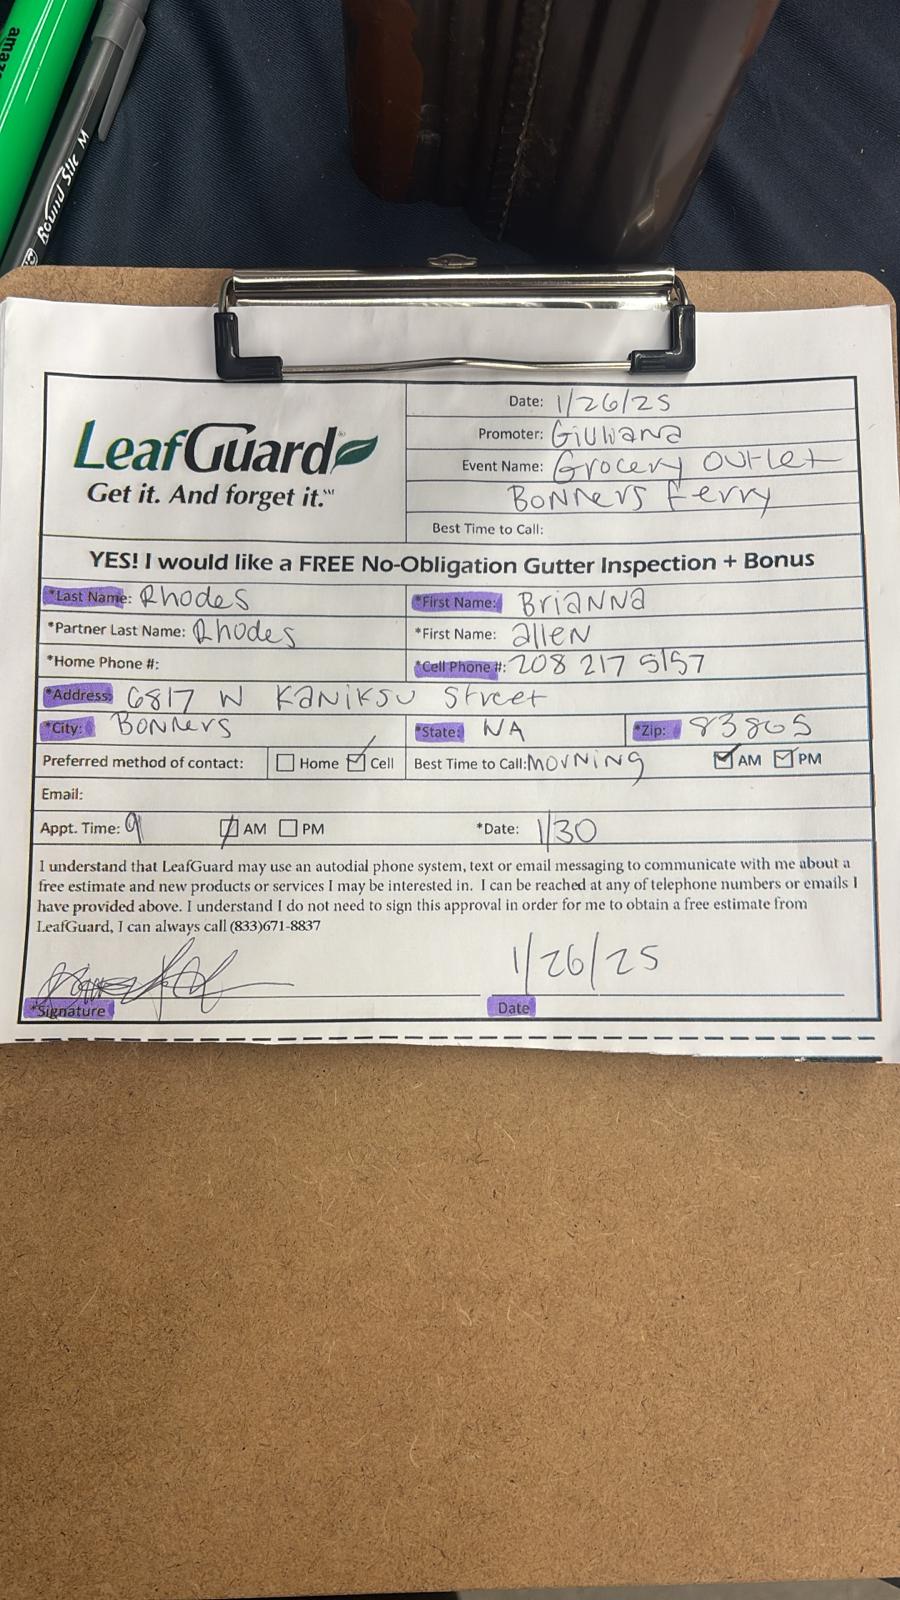 amaz
Round Stic M
LeafGuard®
Get it. And forget it.℠
Date: 1/26/25
Promoter: Giuliana
Event Name: Grocery Outlet
Bonners Ferry
Best Time to Call:
YES! I would like a FREE No-Obligation Gutter Inspection + Bonus
*Last Name: Rhodes *First Name: Brianna
*Partner Last Name: Rhodes *First Name: allen
*Home Phone #: *Cell Phone #: 208 217 5157
*Address: 6817 W Kaniksu Street
*City: Bonners *State: NA *Zip: 83805
Preferred method of contact: Home Cell Best Time to Call: Morning AM PM
Email:
Appt. Time: 9 AM PM *Date: 1/30
I understand that LeafGuard may use an autodial phone system, text or email messaging to communicate with me about a
free estimate and new products or services I may be interested in. I can be reached at any of telephone numbers or emails I
have provided above. I understand I do not need to sign this approval in order for me to obtain a free estimate from
LeafGuard, I can always call (833)671-8837
1/26/25
*Signature Date